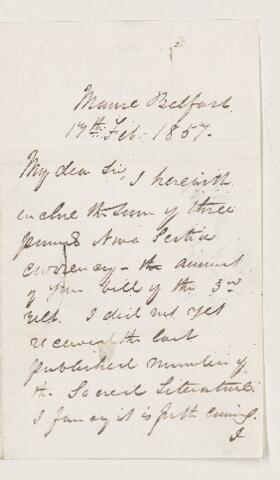 Manse Belfast.
17th Feb: 1857.
My dear Sir, I herewith
enclose the sum of three
pounds Nova Scotia
currency - the amount
of your bill of the 3rd
I did not yet
received the last
published number of
the Sacred Literature.
I fancy it is forth coming.
I